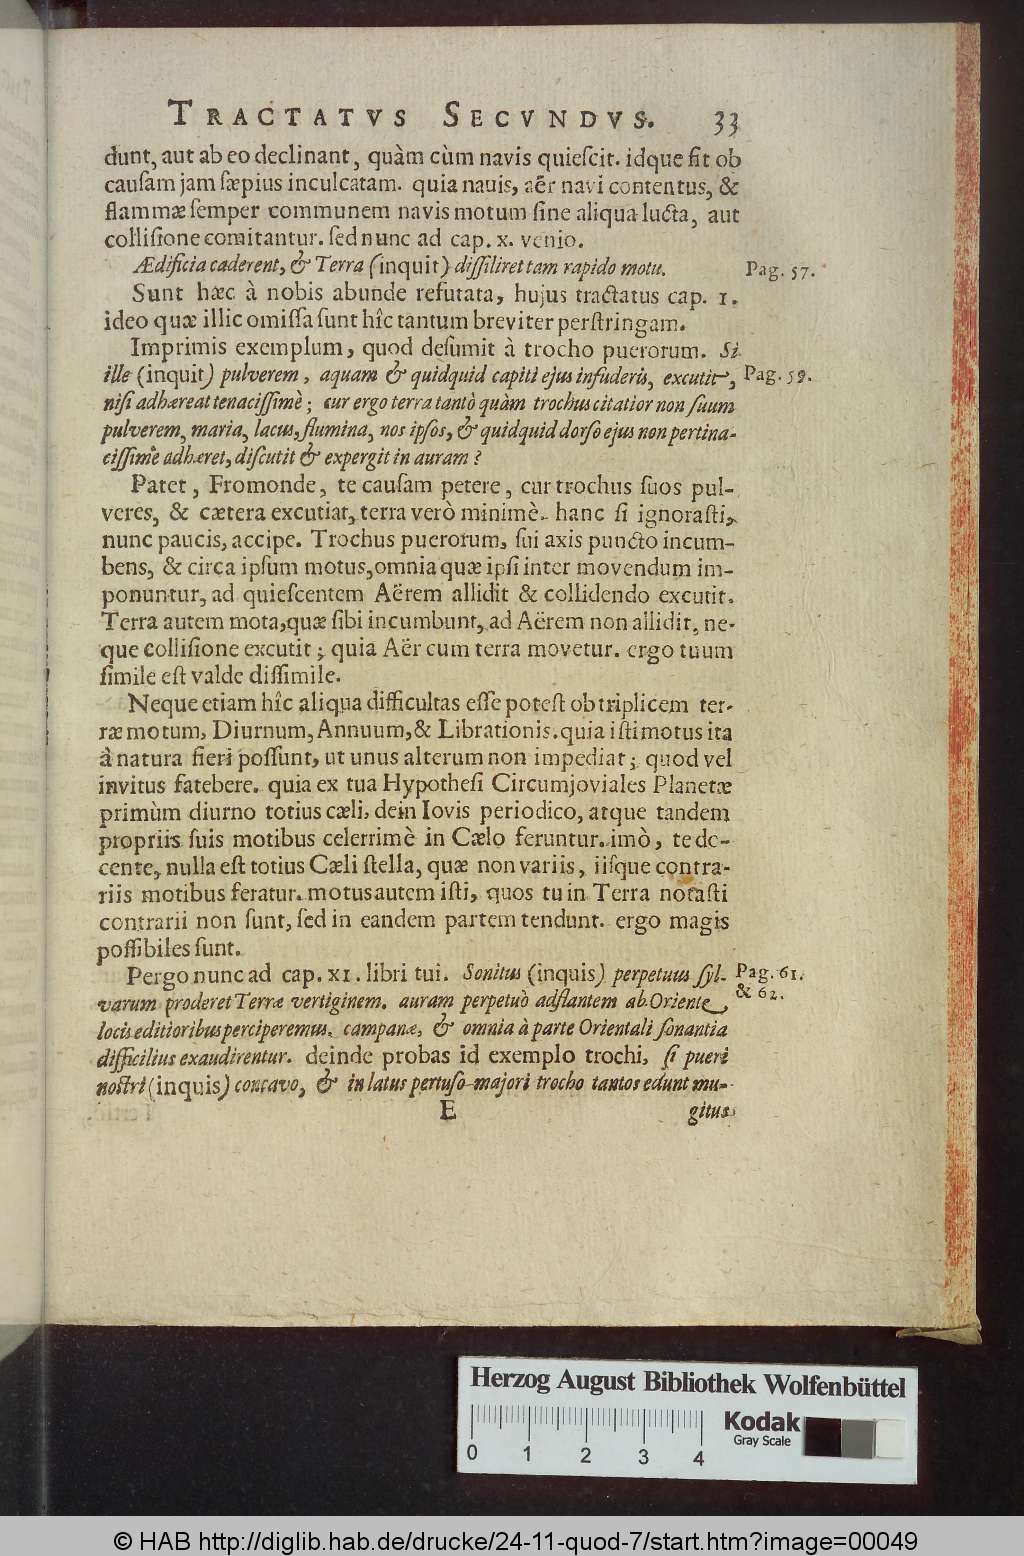 TRACTATVS SECVNDVS. 33
dunt, aut ab eo declinant, quàm cùm navis quieſcit. idque fit ob
cauſam jam ſæpius inculcatam. quia nauis, aër navi contentus, &
flammæ ſemper communem navis motum ſine aliqua lucta, aut
colliſione comitantur. ſed nunc ad cap. x. venio.
Ædificia caderent, & Terra (inquit) diſſiliret tam rapido motu. Pag. 57.
Sunt hæc à nobis abunde refutata, hujus tractatus cap. 1.
ideo quæ illic omiſſa ſunt hîc tantum breviter perſtringam.
Imprimis exemplum, quod deſumit à trocho puerorum. Si
ille (inquit) pulverem, aquam & quidquid capiti ejus infuderis, excutit, Pag. 59.
niſi adhæreat tenaciſſimè; cur ergo terra tantò quàm trochus citatior non ſuum
pulverem, maria, lacus, flumina, nos ipſos, & quidquid dorſo ejus non pertina-
ciſſimè adhæret, diſcutit & expergit in auram?
Patet, Fromonde, te cauſam petere, cur trochus ſuos pul-
veres, & cætera excutiat, terra verò minimè. hanc ſi ignoraſti,
nunc paucis, accipe. Trochus puerorum, ſui axis puncto incum-
bens, & circa ipſum motus, omnia quæ ipſi inter movendum im-
ponuntur, ad quieſcentem Aërem allidit & collidendo excutit.
Terra autem mota, quæ ſibi incumbunt, ad Aërem non allidit, ne-
que colliſione excutit; quia Aër cum terra movetur. ergo tuum
ſimile eſt valde diſſimile.
Neque etiam hîc aliqua difficultas eſſe poteſt ob triplicem ter-
ræ motum, Diurnum, Annuum, & Librationis. quia iſti motus ita
à natura fieri poſſunt, ut unus alterum non impediat; quod vel
invitus fatebere. quia ex tua Hypotheſi Circumjoviales Planetæ
primùm diurno totius cæli, dein Iovis periodico, atque tandem
propriis ſuis motibus celerrimè in Cælo feruntur. imò, te do-
cente, nulla eſt totius Cæli ſtella, quæ non variis, iiſque contra-
riis motibus feratur. motus autem iſti, quos tu in Terra notaſti
contrarii non ſunt, ſed in eandem partem tendunt. ergo magis
poſſibiles ſunt.
Pergo nunc ad cap. XI. libri tui. Sonitus (inquis) perpetuus ſyl- Pag. 61.
varum proderet Terræ vertiginem. auram perpetuò adflantem ab Oriente & 62.
locis editioribus perciperemus, campanæ, & omnia à parte Orientali ſonantia
difficilius exaudirentur. deinde probas id exemplo trochi, ſi pueri
noſtri (inquis) concavo, & in latus pertuſo majori trocho tantos edunt mu-
E gitus
Herzog August Bibliothek Wolfenbüttel
Kodak
Gray Scale
0 1 2 3 4
© HAB http://diglib.hab.de/drucke/24-11-quod-7/start.htm?image=00049